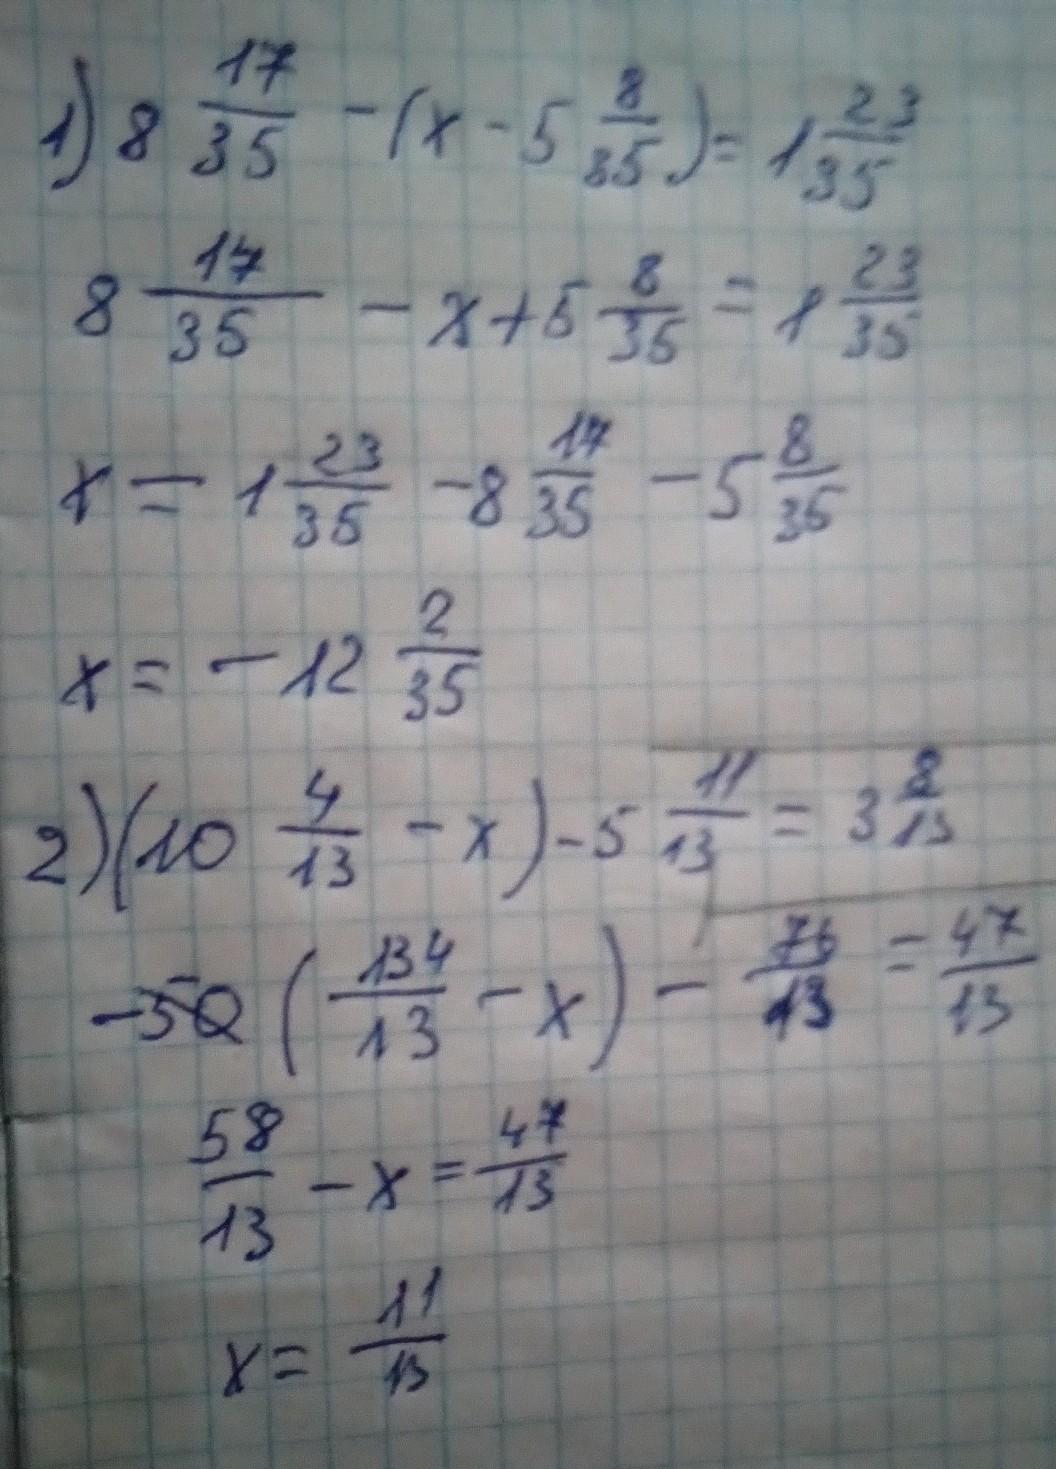 1) 8 17/35 - (x - 5 8/35) = 1 23/35
8 17/35 - x + 5 8/35 = 1 23/35
x = 1 23/35 - 8 17/35 - 5 8/35
x = - 12 2/35
2) (10 4/13 - x) - 5 11/13 = 3 8/13
(134/13 - x) - 76/13 = 47/13
58/13 - x = 47/13
x = 11/13